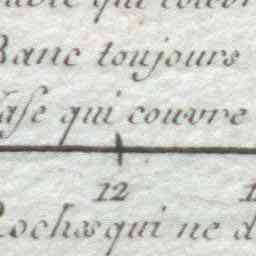 Banc toujours
qui couvre
12
Roches qui ne d